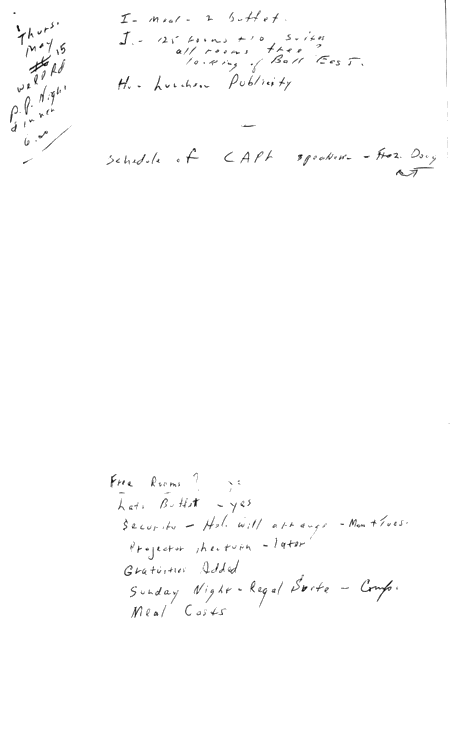 Thurs.
May 15
P.P. Night
dinner
6:00
I - Meal - 2 buffet.
J. - 125 rooms + 10 suites
all rooms
looking of Ball East.
H. - Luncheon Publicity
—
Schedule of - Doug
Free Rooms?
Late Buffet - yes
Security - will arrange - Mon + Tues.
Projector - later
Gratuities Added
Sunday Night - Regal Suite - Comp.
Meal Costs